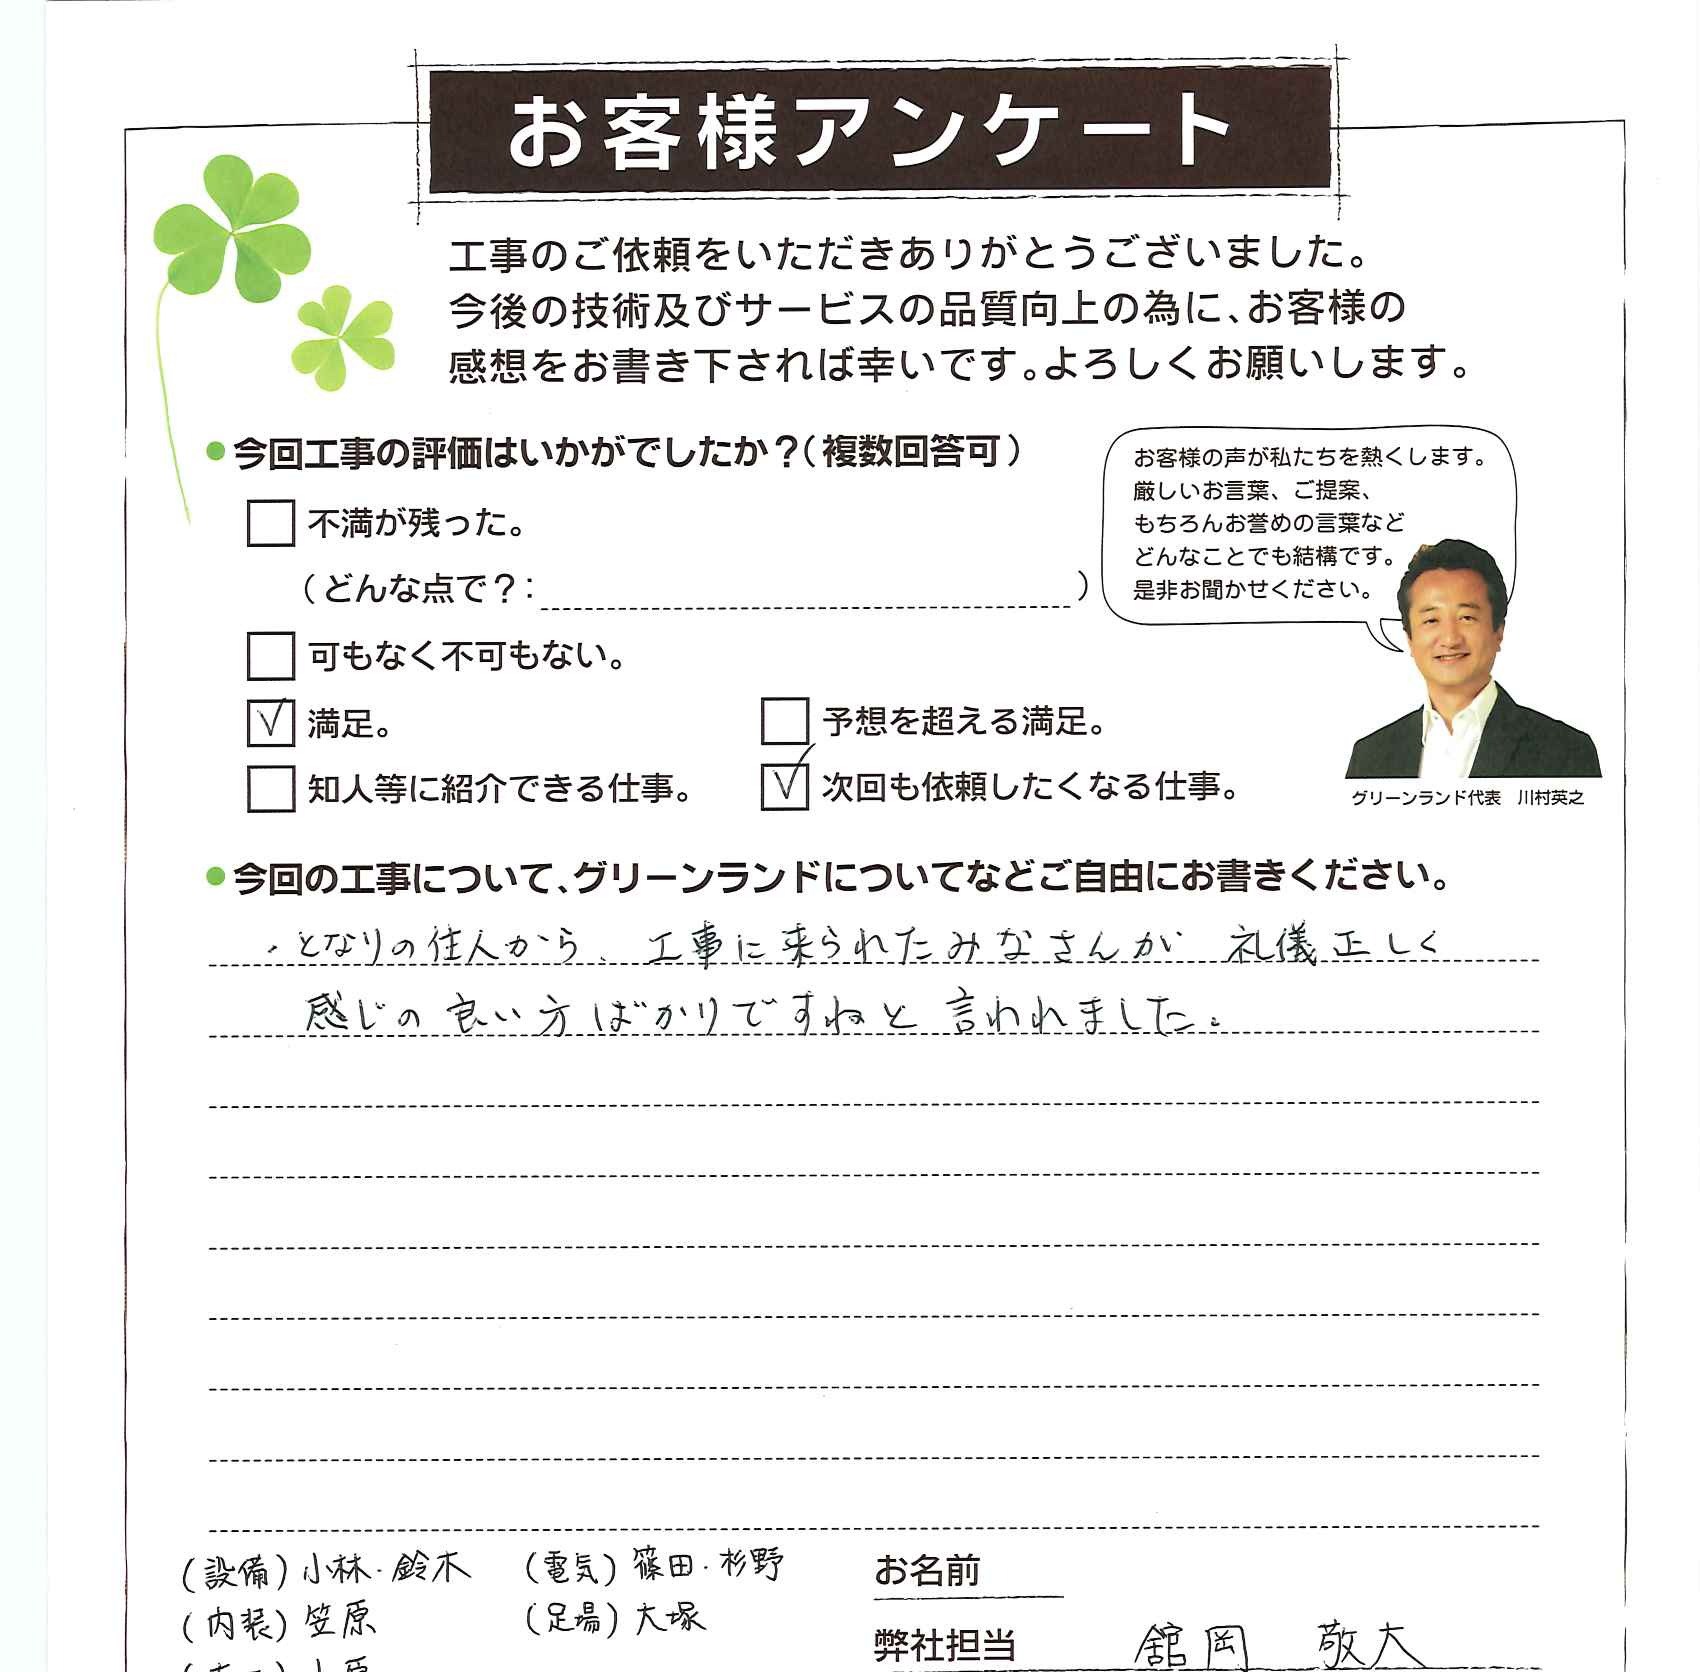 お客様アンケート
工事のご依頼をいただきありがとうございました。
今後の技術及びサービスの品質向上の為に、お客様の
感想をお書き下されば幸いです。よろしくお願いします。
今回工事の評価はいかがでしたか？（複数回答可）
不満が残った。
（どんな点で？：　　　）
可もなく不可もない。
満足。
予想を超える満足。
知人等に紹介できる仕事。
次回も依頼したくなる仕事。
お客様の声が私たちを熱くします。
厳しいお言葉、ご提案、
もちろんお誉めの言葉など
どんなことでも結構です。
是非お聞かせください。
グリーンランド代表　川村英之
今回の工事について、グリーンランドについてなどご自由にお書きください。
・となりの住人から、工事に来られたみなさんが 礼儀正しく
感じの良い方ばかりですねと言われました。
(設備) 小林・鈴木
(電気) 篠田・杉野
(内装) 笠原
(足場) 大塚
お名前
弊社担当 舘岡 敬大